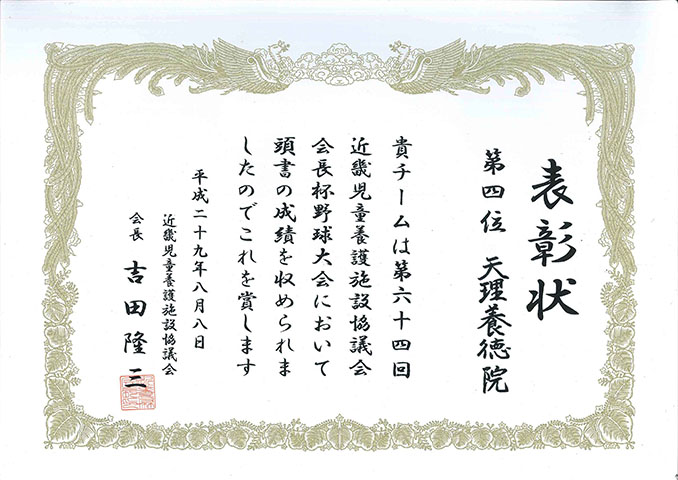 表彰状
第四位 天理養徳院
貴チームは第六十四回
近畿児童養護施設協議会
会長杯野球大会において
頭書の成績を収められま
したのでこれを賞します
平成二十九年八月八日
近畿児童養護施設協議会
会長 吉田隆三